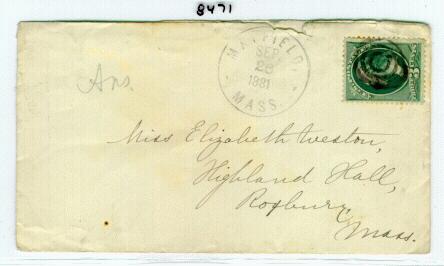 8471
Ans.
SEP
28
1881
MASS.
Miss Elizabeth Weston,
Highland Hall,
Roxbury
Mass.